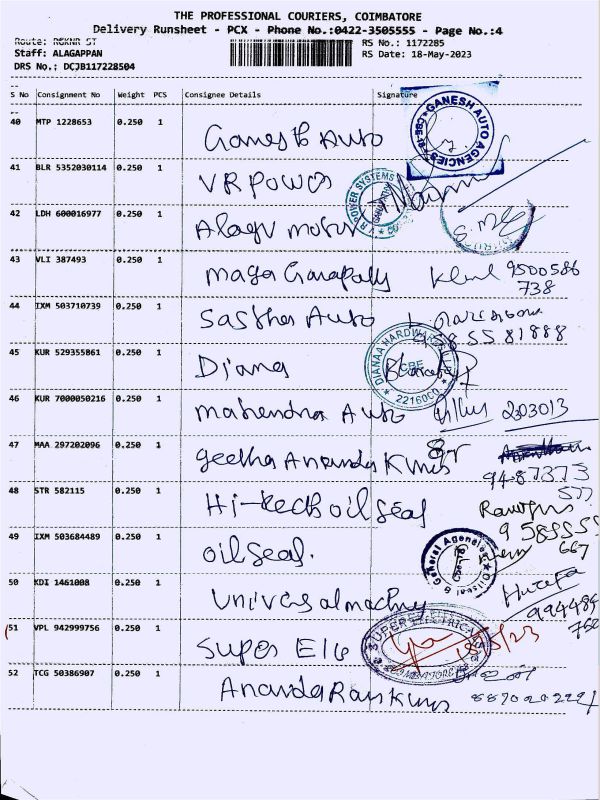 THE PROFESSIONAL COURIERS, COIMBATORE
Delivery Runsheet - PCX - Phone No.:0422-3505555 - Page No.:4
Route: RGKNR ST RS No.: 1172285
Staff: ALAGAPPAN RS Date: 18-May-2023
DRS No.: DCJB117228504
S No Consignment No Weight PCS Consignee Details Signature
40 MTP 1228653 0.250 1 Ganesh Auto GANESH AUTO AGENCIES
41 BLR 5352030114 0.250 1 VR Power V R POWER SYSTEMS
42 LDH 600016977 0.250 1 Alagu motor
43 VLI 387493 0.250 1 maga Ganapathy 9500586
738
44 IXM 503710739 0.250 1 Sastha Auto
45 KUR 529355861 0.250 1 Diana DIANAA HARDWARE CBE
46 KUR 7000050216 0.250 1 mahendra Auto 203013
47 MAA 297202096 0.250 1 geetha Ananda Kumar
9487373
577
48 STR 582115 0.250 1 Hi-tech oil seal
958555
667
49 IXM 503684489 0.250 1 oil seal. Oilseal & General Agencies
50 KDI 1461008 0.250 1 Universal machiny
51 VPL 942999756 0.250 1 Super Ele SUPER ELECTRICALS COIMBATORE 18/5/23
52 TCG 50386907 0.250 1 Ananda Raj Kumar